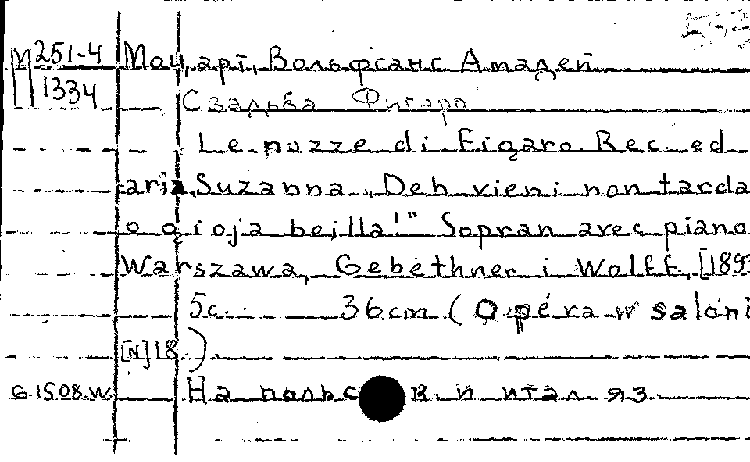 М 251-4 Моцарт, Вольфганг Амадей
1334
Свадьба Фигаро
Le nozze di Figaro. Rec. ed
aria Suzanna „Deh vieni non tarda
o gioja beilla!" Sopran avec piano
Warszawa, Gebethner i Wolff, [189
5c. 36cm (Opéra w saloni
[N]18.)
G.1508.W. На польск и итал. яз.